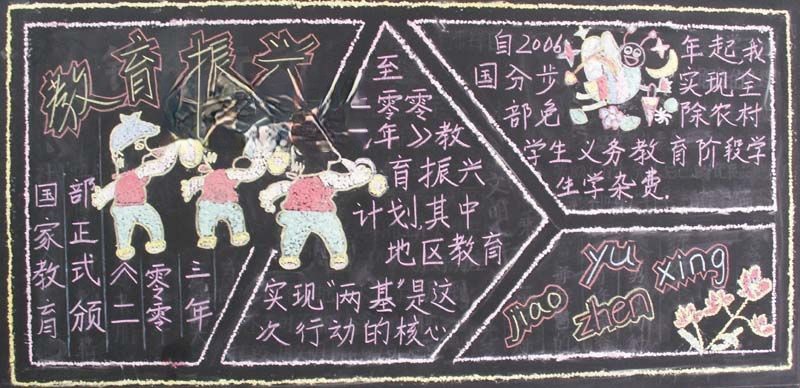 教育振兴
国家教育
部正式颁
《二
零零
三年
至
二零零
年》教
育振兴
计划,其中
地区教育
实现"两基"是这
次行动的核心
自2006年起我
国分步实现全
部免除农村
学生义务教育阶段学
生学杂费.
jiao yu
zhen xing